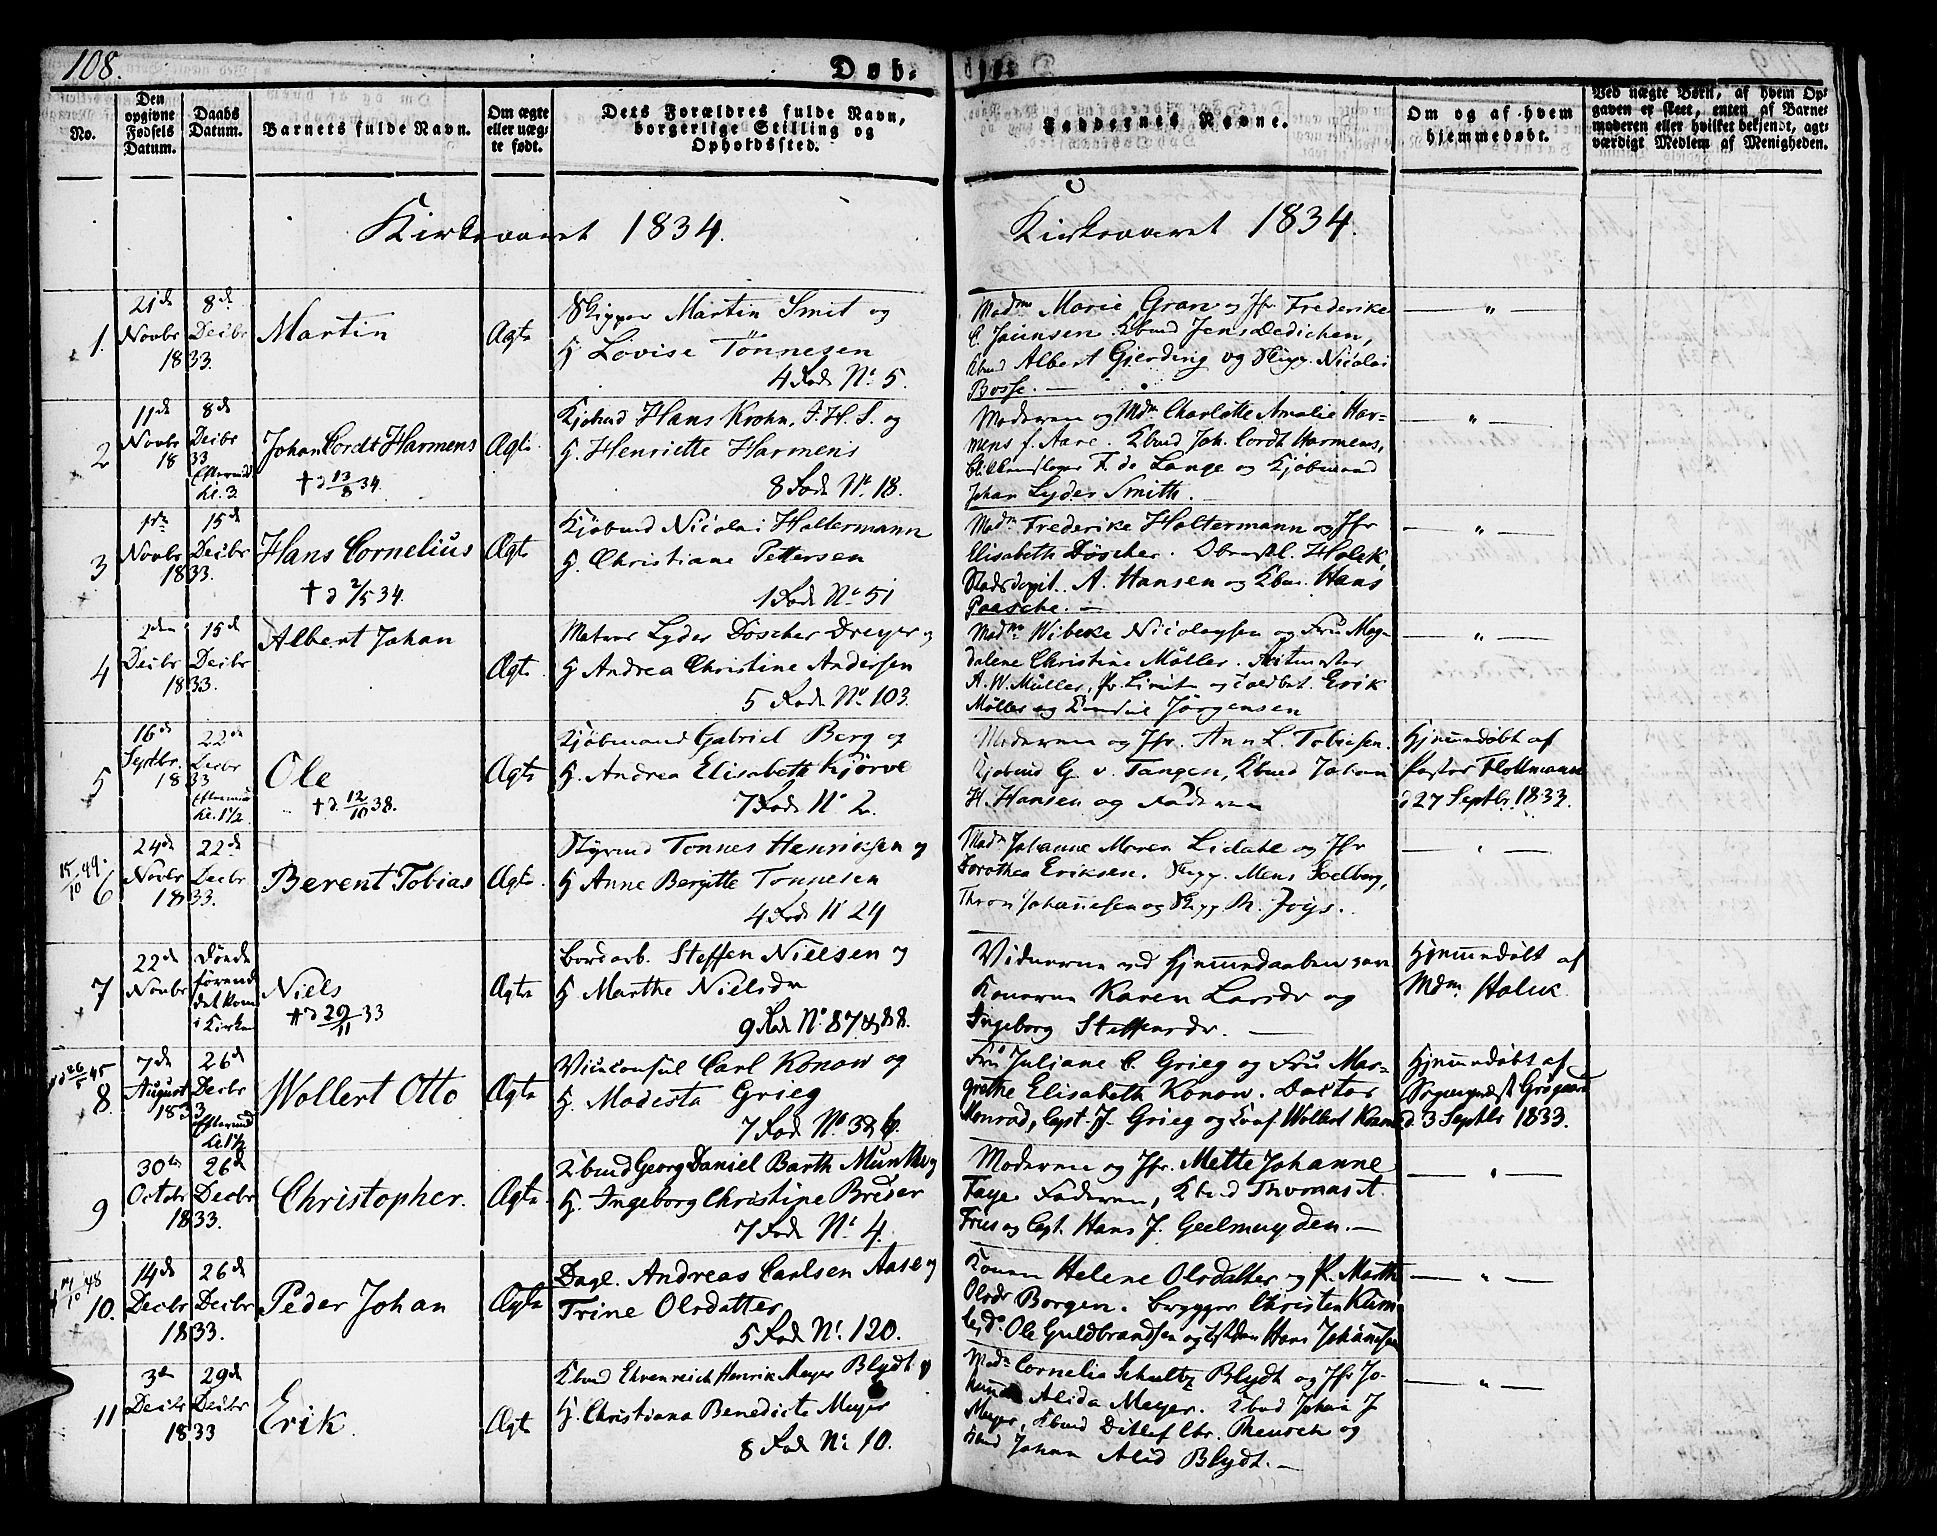 108.
Døb.
No.
Den opgivne Fødsels Datum.
Daabs Datum.
Barnets fulde Navn.
Om ægte eller uægte født.
Dets Forældres fulde Navn, borgerlige Stilling og Opholdssted.
Faddernes Navne.
Om og af hvem hjemmedøbt.
Ved uægte Børn, af hvem Opgaven er skeet, enten af Barnemoderen eller hvilket bekjendt, agtværdigt Medlem af Menigheden.
Kirkeaaret 1834.
Kirkeaaret 1834.
1. 21de Novbr 1833. 8de Decbr Martin Ægte
Skipper Martin Smit og
H. Lovise Tönnesen
4 Rode No. 5.
Madme Marie Gran og Jfr Frederike
C. Jansen Kbmd Jens Dedichen,
Kbmd Albert Gjerding og Skipp. Nicolai
Bosse.
2 11de Novbr 1833 8de Decbr Eftermid Kl. 3 Johan Cordt Harmens Ægte
† d 13/8 34.
Kjøbmd Hans Krohn, J. H. S. og
H. Henriette Harmens
8 Rode No. 18.
Moderen og Mdm. Charlotte Amalie Harmens
f. Aare. Kbmd Joh. Cordt Harmens,
F. de Lange og Kjøbmand
Johan Lyder Smith.
3 1ste Novbr 1833. 15de Decbr Hans Cornelius Ægte
† d 2/5 34.
Kjøbmd Nicolai Holtermann
H. Christiane Pettersen
1 Rode No. 51
Madm. Frederike Holtermann og Jfr
Elisabeth Döscher. Holck,
A. Hansen og Kbm. Hans
Paasche.
4 2den Decbr 1833. 15de Decbr Albert Johan Ægte
Lyder Döscher Dreyer og
H. Andrea Christine Andersen
5 Rode No. 103.
Madme Wibeke Nicolaysen og Fru Magdalene
Christine Möller. Ritmester
A. W. Müller, Pr. Lieut og Toldbet. Erik
Möller og Jörgensen
5 16de Septbr. 1833 22de Decbr Eftermid Kl. 1 1/2 Ole Ægte
† d. 12/10 38.
Kjøbmand Gabriel Berg og
H. Andrea Elisabeth Kjörve
7 Rode No 2.
Moderen og Jfr. Ann L. Tobiesen.
Kjøbmd G. v. Tangen, Kbmd Johan
H. Hansen og Faderen
Hjemmedøbt af
Pastor Flottmann
d 27 Septbr. 1833.
15/10 49. 6 24de Novbr 1833. 22de Decbr Berent Tobias Ægte
Styrmd Tonnes Henriksen og
H Anne Bergitte Tonnesen
4 Rode No 29
Madm Johanne Maren Lidahl og Jfr
Dorothea Eriksen. Skipp. Mens Soelberg,
Thron Johannesen og Skipp
7 22de Novbr Døde førend det kom i Kirke Niels Ægte
† d 29/11 33
Bordarb. Steffen Nielsen og
H Marthe Nielsdr
9 Rode No. 87 & 88.
Vidnerne ved Hjemmedaaben vare
Konerne Karen Larsdr og
Ingeborg Steffensdr.
Hjemmedøbt af
Mdm. Holck.
26/5 45 8. 7de August 1833 26de Decbr Eftermid Kl. 1 1/2 Wollert Otto Ægte
Viceconsul Carl Konow og
H. Modesta Grieg
7 Rode No. 3 & 6.
Fru Juliane C. Grieg og Fru Margrethe
Elisabeth Konow. Doctor
Konrad, Capt. J. Grieg og Wollert Konow
Hjemmedøbt af
Sognepræst Grøgaard
d. 3 Septbr 1833.
9 30te Octobr 1833. 26de Decbr Christopher. Ægte
Kbmd Georg Daniel Barth Munthe og
H. Ingeborg Christine Breder
7 Rode No. 4.
Moderen og Jfr. Mette Johanne
Faye Faderen, Kbmd Thomas A.
Friis og Capt. Hans J. Geelmuyden.
17/10 48 10. 14de Decbr 1833. 26de Decbr Peder Johan Ægte
Dagl. Andreas Carlsen Aase og
Trine Olsdatter
5 Rode No. 120.
Konen Helene Olsdatter og P. Marthe
Olsdr Borgen. Brygger Christen
Ole Guldbrandsen og Hans Johannesen
11 3de Decbr 1833 29de Decbr Erik. Ægte
Kbmd Ehrenreich Henrik Meyer Blydt og
H. Christiana Benedicte Meyer
8 Rode No. 10.
Madm Cornelia Schultz Blydt og Jfr Johanne
Alida Meyer. Kbmd Johan J
Meyer, Kbmd Ditlef Chr. Rensch og
Kbmd Johan Alid Blydt.